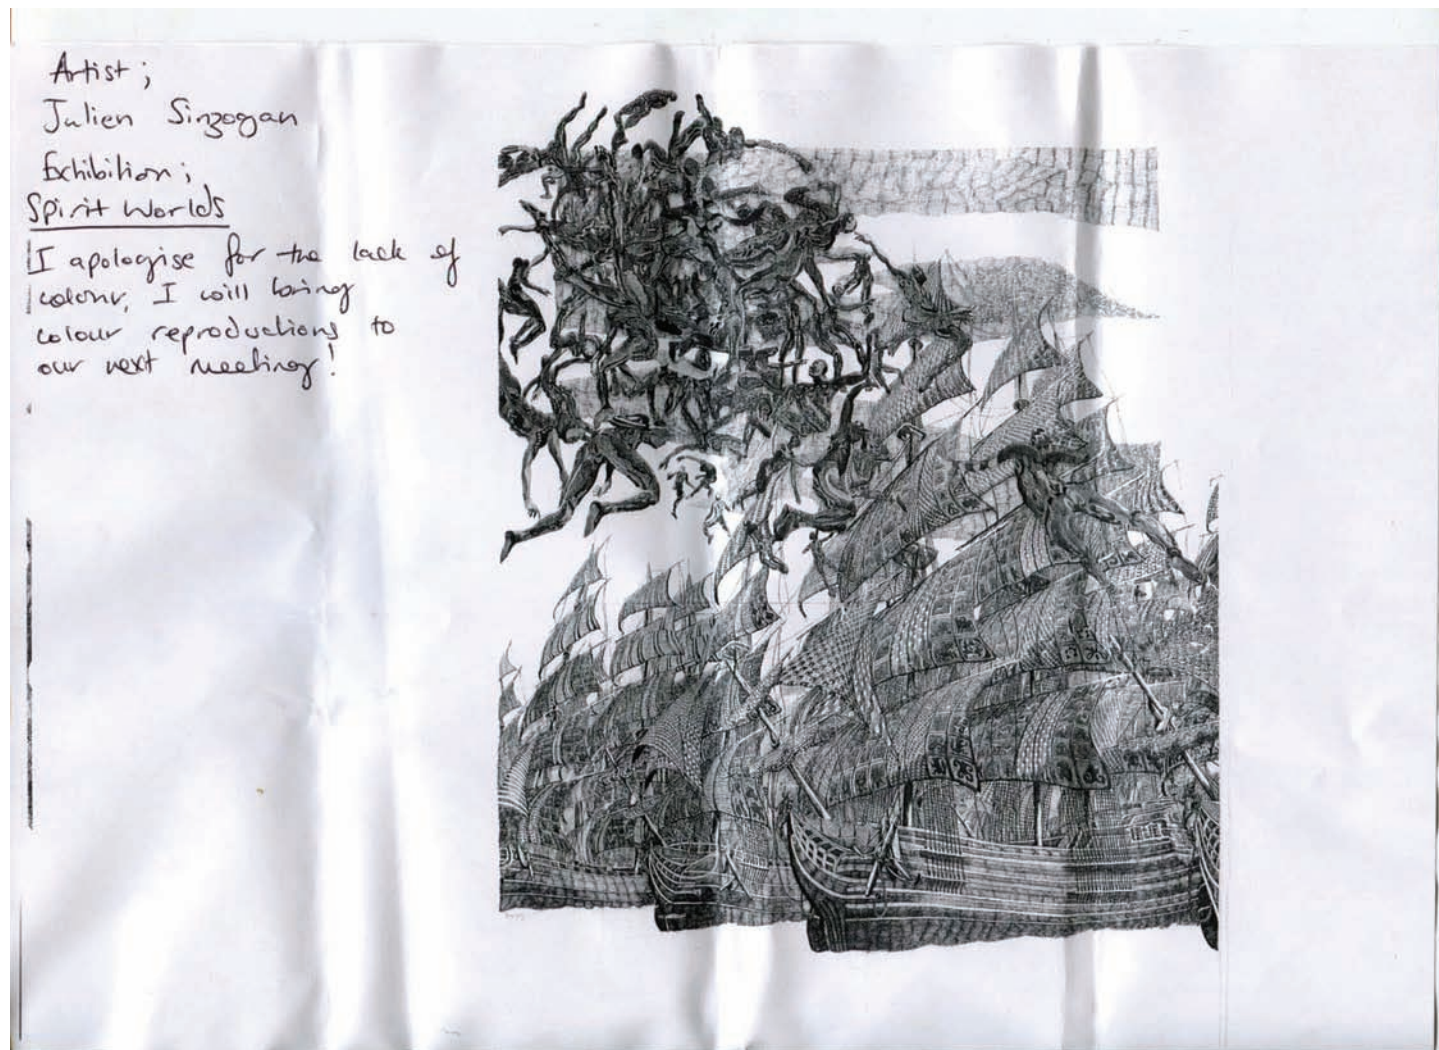 Artist;
Julien Sinzogan
Exhibition;
Spirit Worlds
I apologise for the lack of
colour, I will bring
colour reproductions to
our next meeting!